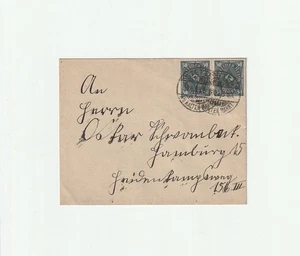 An
Herrn
Oskar Schwambert.
Hamburg 25
Heidenkampsweg
156 III